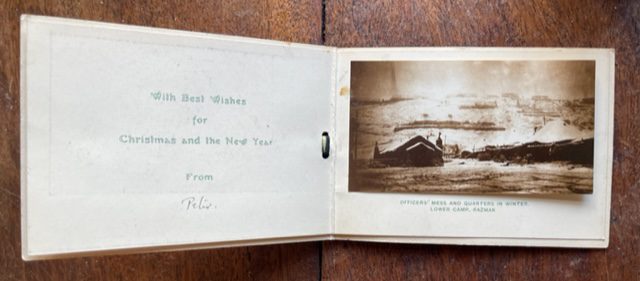 With Best Wishes
for
Christmas and the New Year
From
Felix.
OFFICERS' MESS AND QUARTERS IN WINTER.
LOWER CAMP, RAZMAK